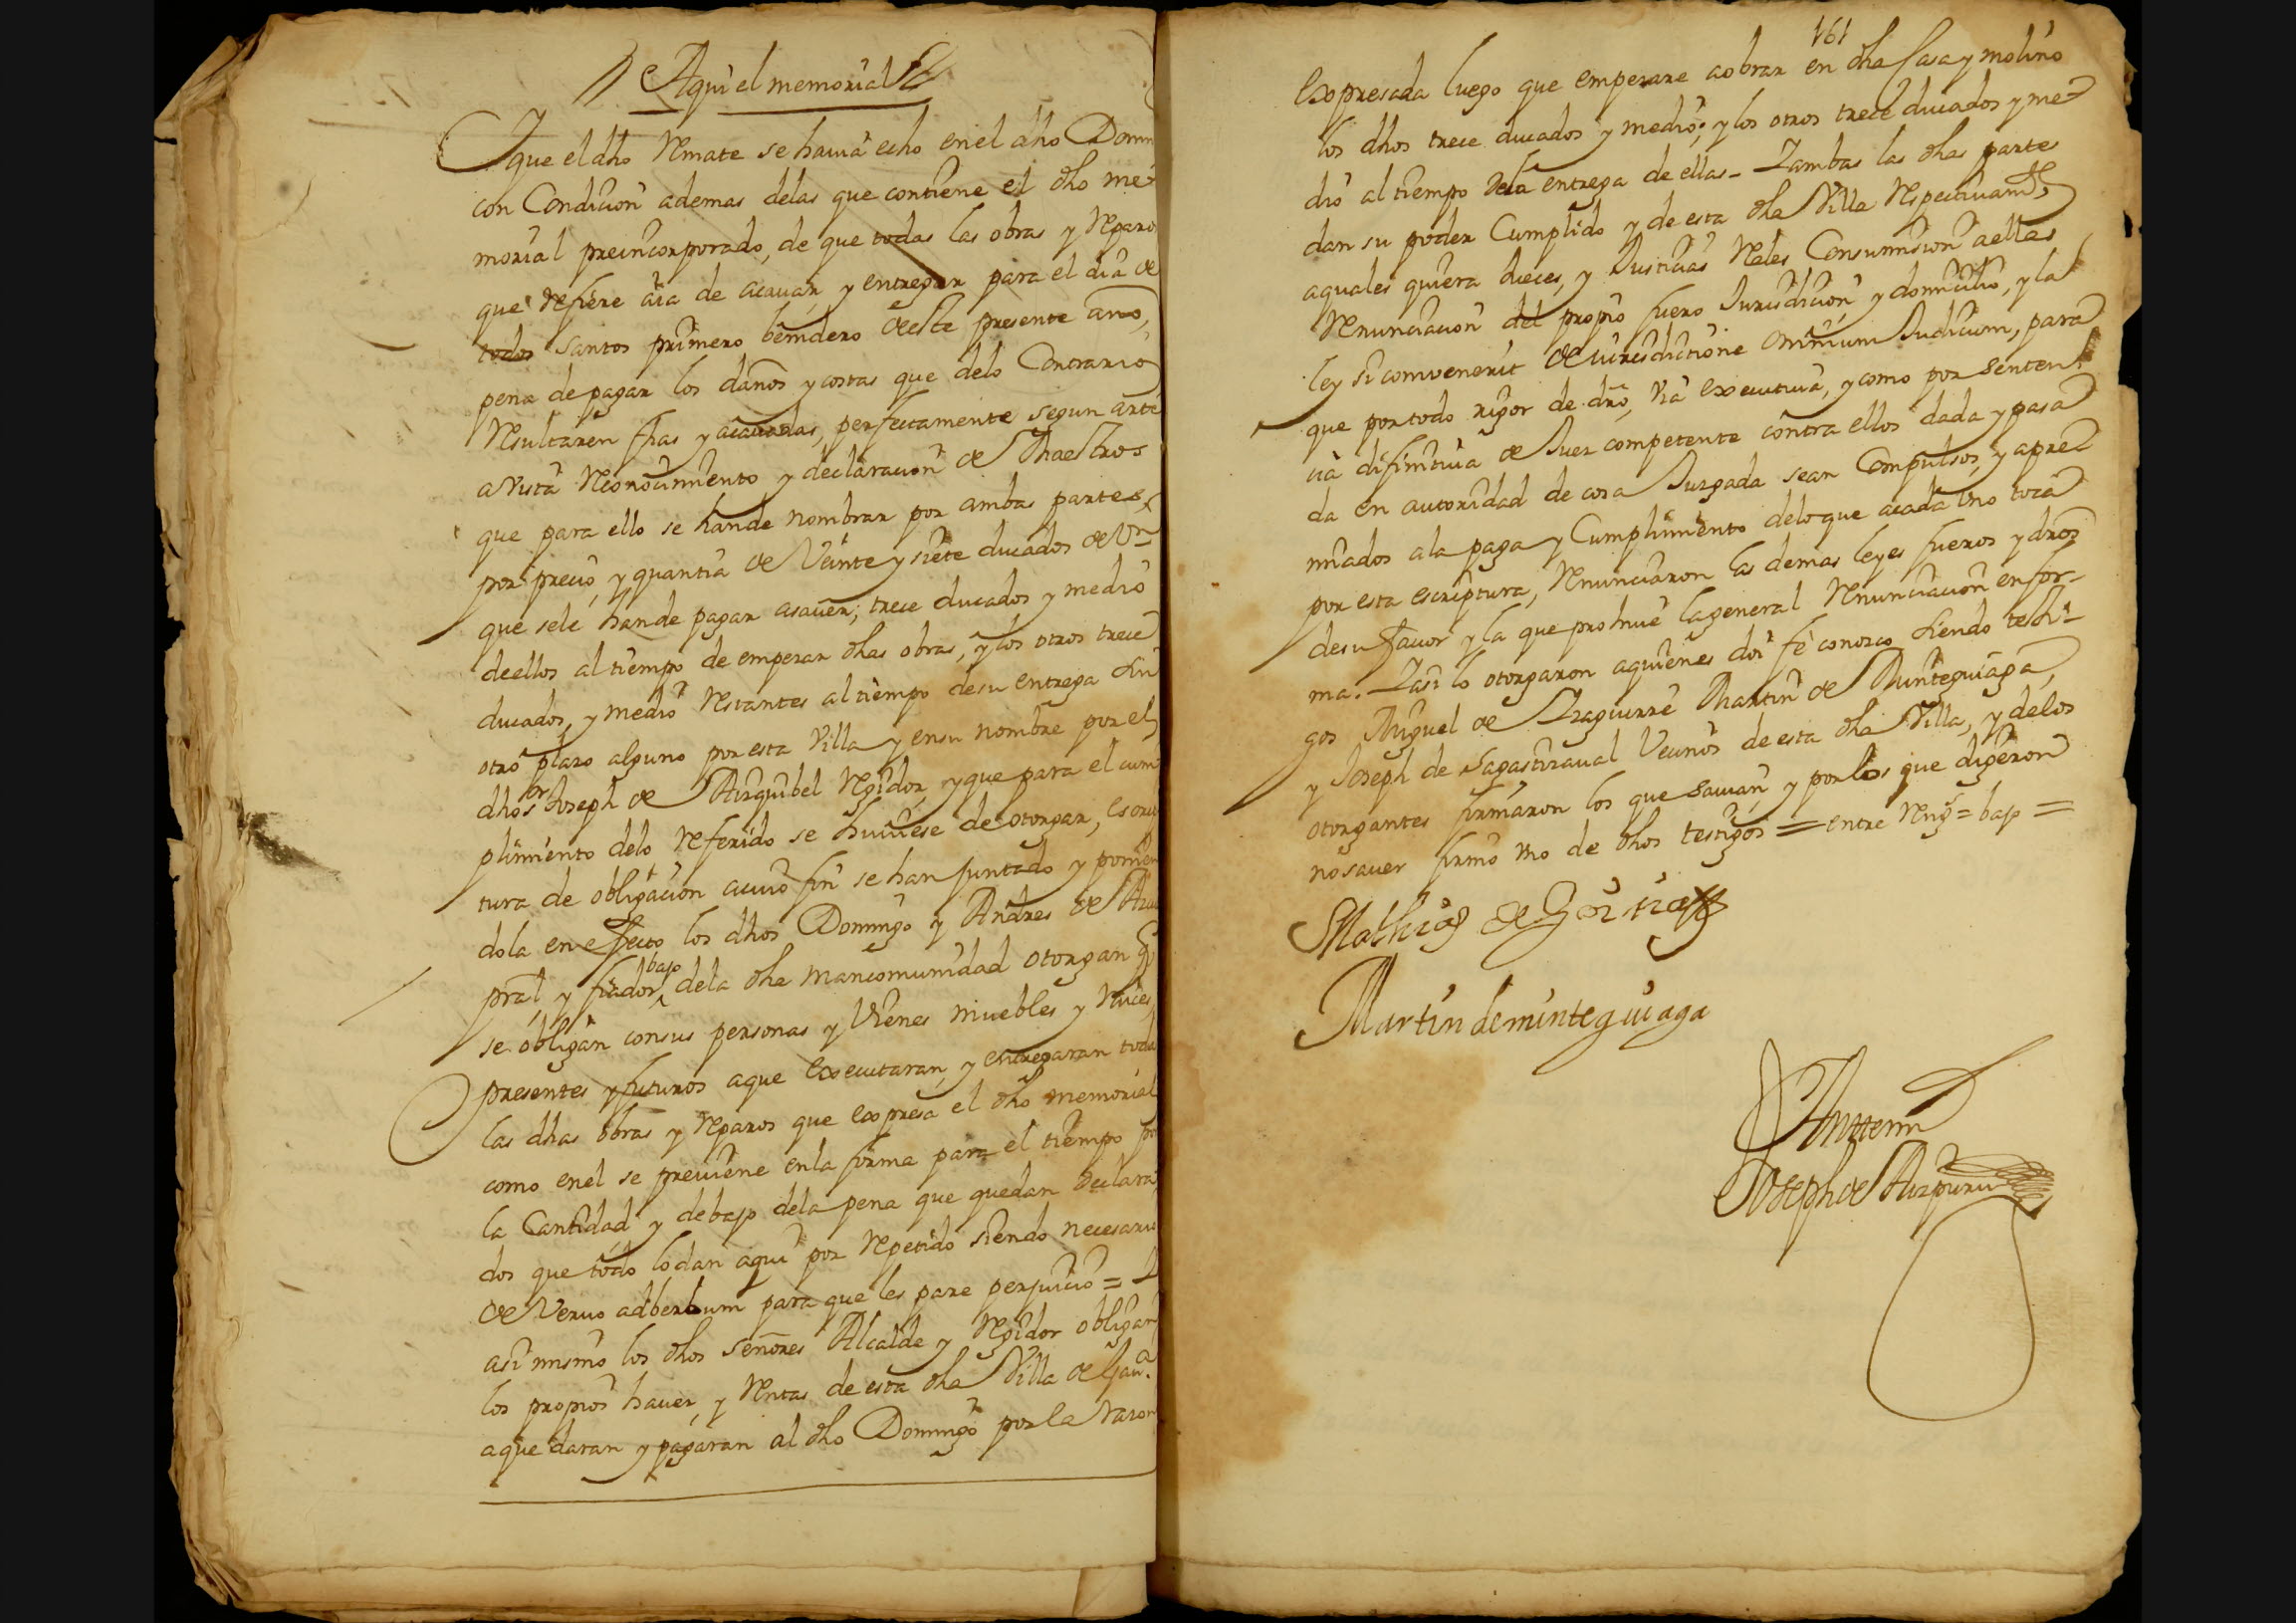 Aqui el memorial
Y que el dho Remate se havia echo en el dho Domin
con Condicion ademas delas que contiene el dho me-
morial preincorporado, de que todas las obras y Reparo
que refiere aia de acavar, y entregar para el dia de
todos santos primero benidero deeste presente año,
pena de pagar los daños y costas que delo Contrario
Resultaren fhas y acavadas, perfectamente segun arte
a vista Reconocimiento y declaracion de Maestros
que para ello se hande nombrar por ambas partes,
por precio, y quantia de Veinte y siete ducados de Vn
que sele hande pagar asaver; trece ducados y medio
deellos al tiempo de empezar dhas obras, y los otros trece
ducados, y medio Restantes al tiempo desu entrega sin
otro plazo alguno por esta Villa y ensu nombre por el
dho Sr Joseph de Aizquibel Regidor, y que para el cum
plimiento delo referido se huviese de otorgar, escrip
tura de obligacion a cuio fin se han juntado y ponien
dola en efecto los dhos Domingo y Andres de
pral, y fiador bajo dela dha mancomunidad otorgan q
se obligan consus personas y Vienes muebles y Raices,
presentes y futuros aque executaran, y entregaran toda
las dhas obras y Reparos que expresa el dho memorial
como enel se previene enla forma para el tiempo por
la Cantidad, y debajo dela pena que quedan declara
dos que todo lo dan aqui por Repetido siendo necesario
de Vervo adberbum para que les pare perjuicio = Y
asi mismo los dhos señores Alcalde y Regidor obligan
los propios haver, y Rentas de esta dha Villa de
aque daran y pagaran al dho Domingo por la razon
161
expresada luego que empezare aobrar en dha Casa y molino
los dhos trece ducados y medio; y los otros trece ducados y me-
dio al tiempo dela entrega de ellas - Y ambas las dhas partes
dan su poder Cumplido y de esta dha Villa Respectivamte
aquales quiera Jueces, y Justicias Reales Consumision aellas
Renunciacion del propio fuero Jurisdicion y domicilio, y la
ley si convenerit de iurisdictione omnium Judicum, para
que portodo rigor de dro, via executiva, y como por senten
cia difinitiva de Juez competente contra ellos dada y pasa
da en autoridad de cosa Juzgada sean Compulsos, y apre
miados ala paga y Cumplimiento delo que acada Uno toca
por esta escriptura, Renunciaron las demas leyes fueros y dros
desu favor y la que prohive la general Renunciacion enfor-
ma. Y asi lo otorgaron aquienes doi fe conozco siendo testi-
gos Miguel de Yraguirre Martin de Munteguiaga,
y Joseph de Sagastizaval Vecinos de esta dha Villa, y delos
otorgantes firmaron los que savian, y por los que digeron
no saver firmo Uno de dhos testigos = entre Rengs = bajo =
Mathias de
Martin de minteguiaga
Antemi
Joseph de Aizpuru